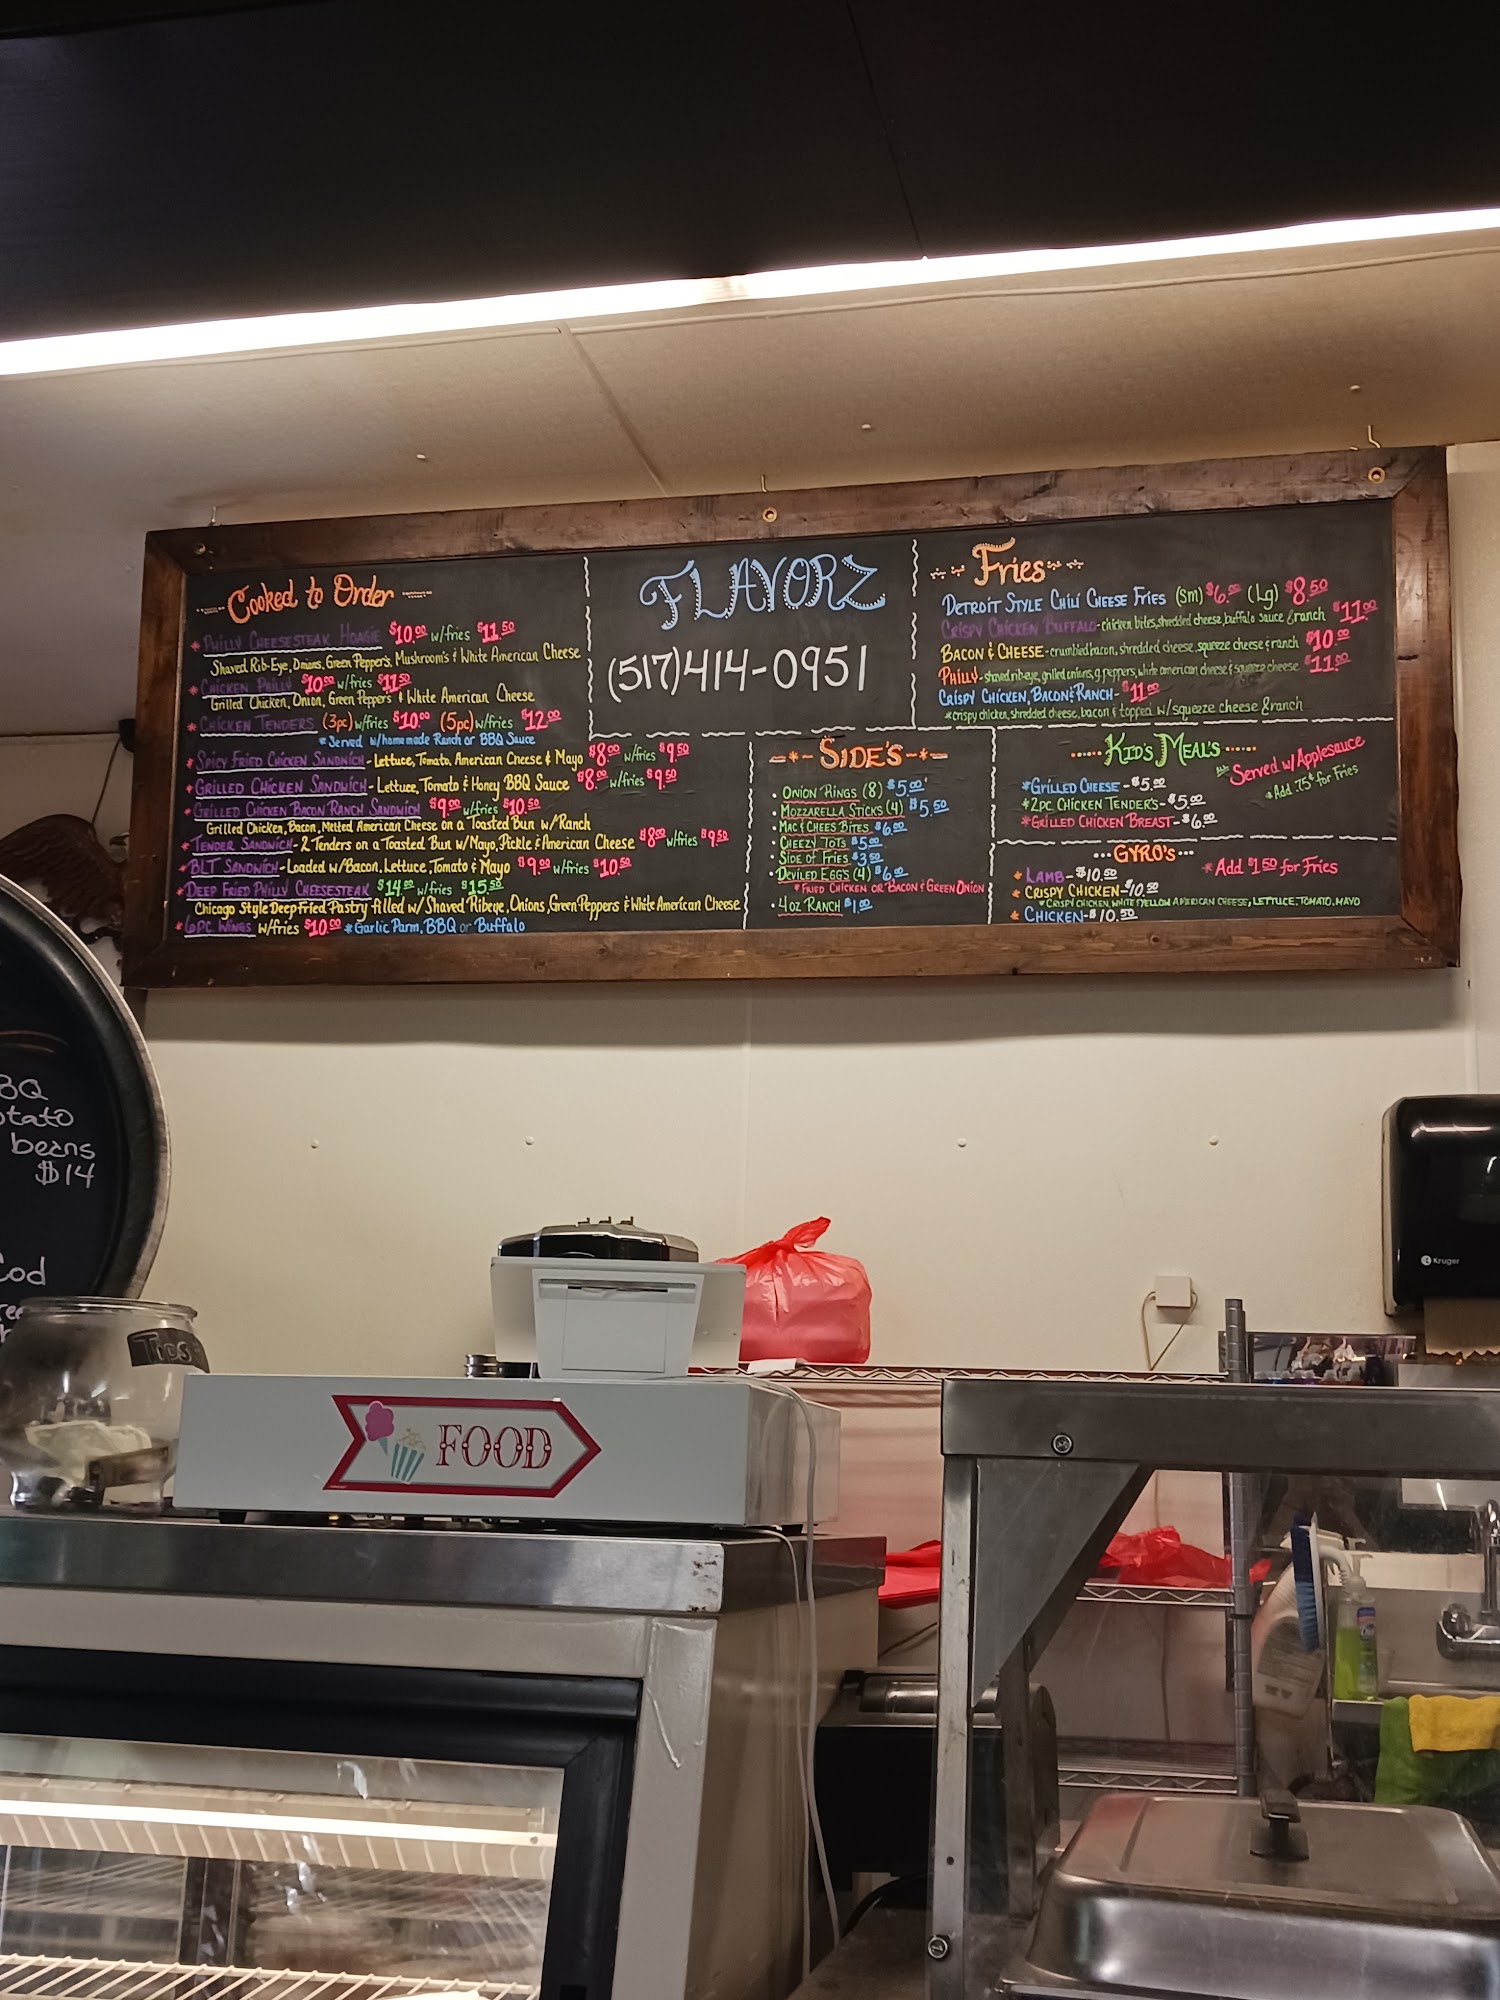 Cooked to Order
* PHILLY CHEESESTEAK HOAGIE $10.00 w/fries $11.50
Shaved Rib-Eye, Onions, Green Pepper's, Mushroom's & White American Cheese
* CHICKEN PHILLY $10.00 w/fries $11.50
Grilled Chicken, Onion, Green Pepper's & White American Cheese
* CHICKEN TENDERS (3pc) w/fries $10.00 (5pc) w/fries $12.00
* Served w/homemade Ranch or BBQ Sauce
* SPICY FRIED CHICKEN SANDWICH - Lettuce, Tomato, American Cheese & Mayo $8.00 w/fries $9.50
* GRILLED CHICKEN SANDWICH - Lettuce, Tomato & Honey BBQ Sauce $8.00 w/fries $9.50
* GRILLED CHICKEN BACON RANCH SANDWICH $9.00 w/fries $10.50
Grilled Chicken, Bacon, Melted American Cheese on a Toasted Bun w/Ranch
* TENDER SANDWICH - 2 Tenders on a Toasted Bun w/Mayo, Pickle & American Cheese $8.00 w/fries $9.50
* BLT SANDWICH - Loaded w/Bacon, Lettuce, Tomato & Mayo $9.00 w/fries $10.50
* DEEP FRIED PHILLY CHEESESTEAK $14.00 w/fries $15.50
Chicago Style Deep Fried Pastry filled w/ Shaved Ribeye, Onions, Green Peppers & White American Cheese
* 6PC WINGS w/fries $10.00 * Garlic Parm, BBQ or Buffalo
FLAVORZ
(517)414-0951
Fries
DETROIT STYLE CHILI CHEESE FRIES (Sm) $6.00 (Lg) $8.50
CRISPY CHICKEN BUFFALO - chicken bites, shredded cheese, buffalo sauce & ranch $11.00
BACON & CHEESE - crumbled bacon, shredded cheese, squeeze cheese & ranch $10.00
PHILLY - shaved ribeye, grilled onions, g. peppers, white american cheese & squeeze cheese $11.00
CRISPY CHICKEN, BACON & RANCH - $11.00
* crispy chicken, shredded cheese, bacon & topped w/squeeze cheese & ranch
SIDE'S
• ONION RINGS (8) $5.00
• MOZZARELLA STICKS (4) $5.50
• MAC & CHEES BITES $6.00
• CHEEZY TOTS $5.00
• SIDE OF FRIES $3.50
• DEVILED EGG'S (4) $6.00
* FRIED CHICKEN OR BACON & GREEN ONION
• 4 OZ RANCH $1.00
KID'S MEAL'S
ALL Served w/Applesauce
* Add .75¢ for Fries
* GRILLED CHEESE - $5.00
* 2PC. CHICKEN TENDER'S - $5.00
* GRILLED CHICKEN BREAST - $6.00
GYRO'S
* Add $1.50 for Fries
* LAMB - $10.50
* CRISPY CHICKEN - $10.50
* CRISPY CHICKEN, WHITE & YELLOW AMERICAN CHEESE, LETTUCE, TOMATO, MAYO
* CHICKEN - $10.50
beans
$14
Cod
Tips
FOOD
Kruger